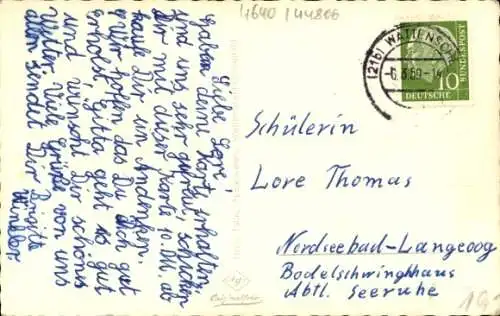 4640 / 44806
Liebe Lore!
Haben deine Karte erhalten
sind uns sehr gefreut, schicken
Dir mit dieser Karte 10. DM. ab
kaufe Dir ein Andenken.
Wir hoffen das Du Dich gut
erholst. Gitta geht es gut
und wünscht Dir schönes
Wetter. Viele Grüße von uns
allen sendet Dir Brigitte
Winkler
(21b) WATTENSCH
-6.3.59-14
10
BUNDESPOST
DEUTSCHE
Schülerin
Lore Thomas
Nordseebad-Langeoog
Bodelschwinghhaus
Abtl. Seeruhe